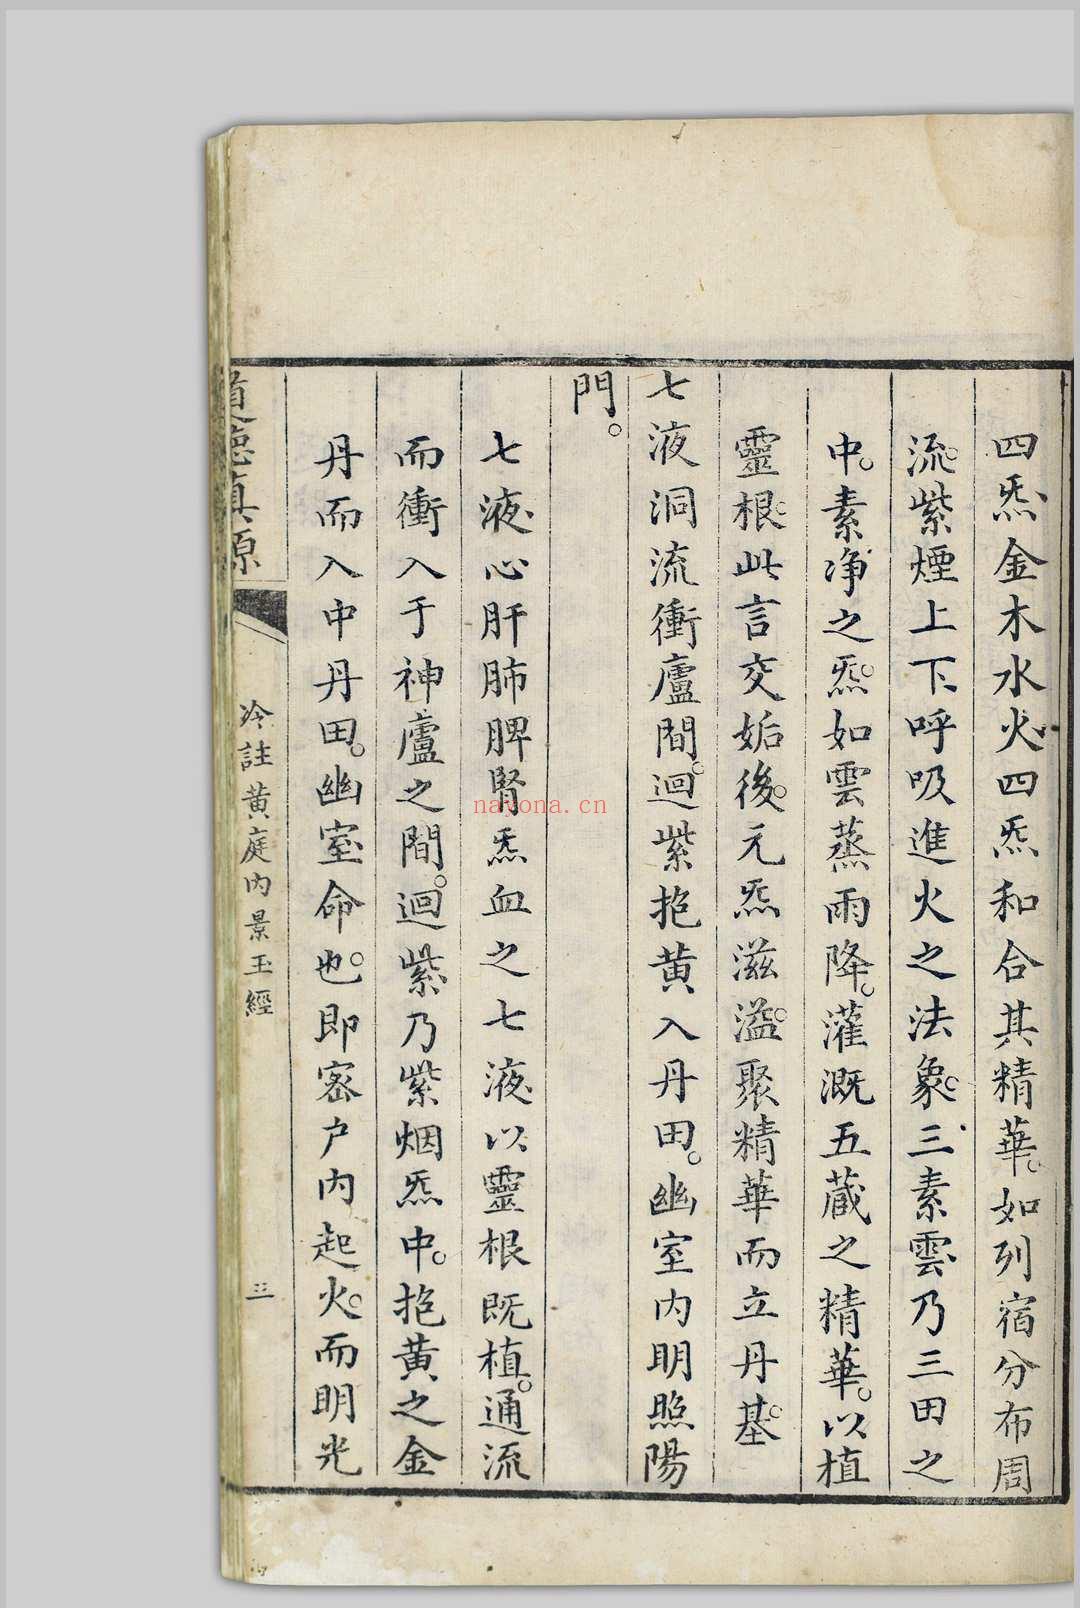 四炁金木水火四炁和合其精華。如列宿分布周
流。紫煙上下呼吸進火之法象。三素雲乃三田之
中。素净之炁。如雲蒸雨降。灌溉五蔵之精華。以植
靈根。此言交姤後。元炁滋溢。聚精華而立丹基。
七液洞流衝廬間。迴紫抱黄入丹田。幽室内明照陽
門。
七液。心肝肺脾腎炁血之七液。以靈根既植。通流
而衝入于神廬之間。迴紫乃紫烟炁中。抱黄之金
丹而入中丹田。幽室命也。即密户内起火。而明光
道德真源
冷註黄庭内景玉經
三
nayona.cn